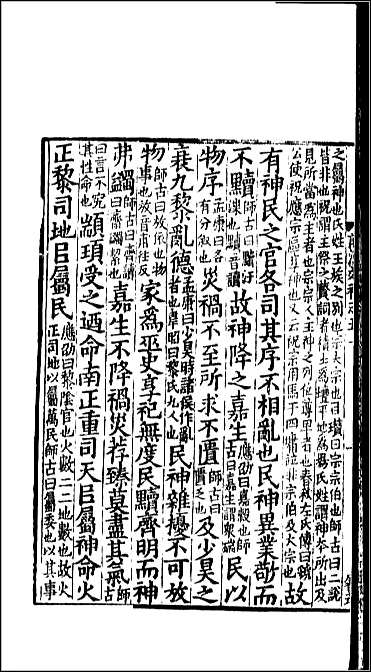 之屬神也氏姓王族之別也宗大宗也臣瓚曰宗宗伯也師古曰二說
皆非也祝謂主祭之贊詞者積土為壇平地為場氏姓謂神本所出及
見所當為主者也宗宗人主神之列位尊卑者也春秋左氏傳曰虢
公使祝應宗區享神也又云祝宗用馬于四墉並非宗伯及大宗也故
有神民之官各司其序不相亂也民神異業敬而
不黷師古曰黷汙渫也音讀故神降之嘉生應劭曰嘉穀也師古曰嘉生謂衆瑞民以
物序孟康曰各有分敘也災禍不至所求不匱師古曰匱乏也及少昊之
衰九黎亂德孟康曰少昊時諸侯作亂者也韋昭曰黎氏九人也民神雜擾不可放
物師古曰放依也物事也放音甫往反家為巫史享祀無度民黷齊明而神
弗蠲師古曰齊讀曰齋蠲絜也嘉生不降禍災荐臻莫盡其氣師古
曰言不究其性命也顓頊受之迺命南正重司天㠯屬神命火
正黎司地㠯屬民應劭曰黎陰官也火數二二地數也故火正司地以屬萬民師古曰屬委也以其事